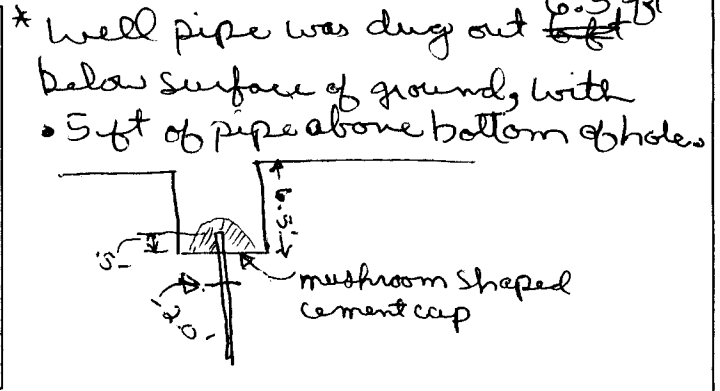 * Well pipe was dug out 6.5
below surface of ground, with
.5 ft of pipe above bottom of hole.
6.5'
.5'
mushroom shaped
cement cap
2.0'